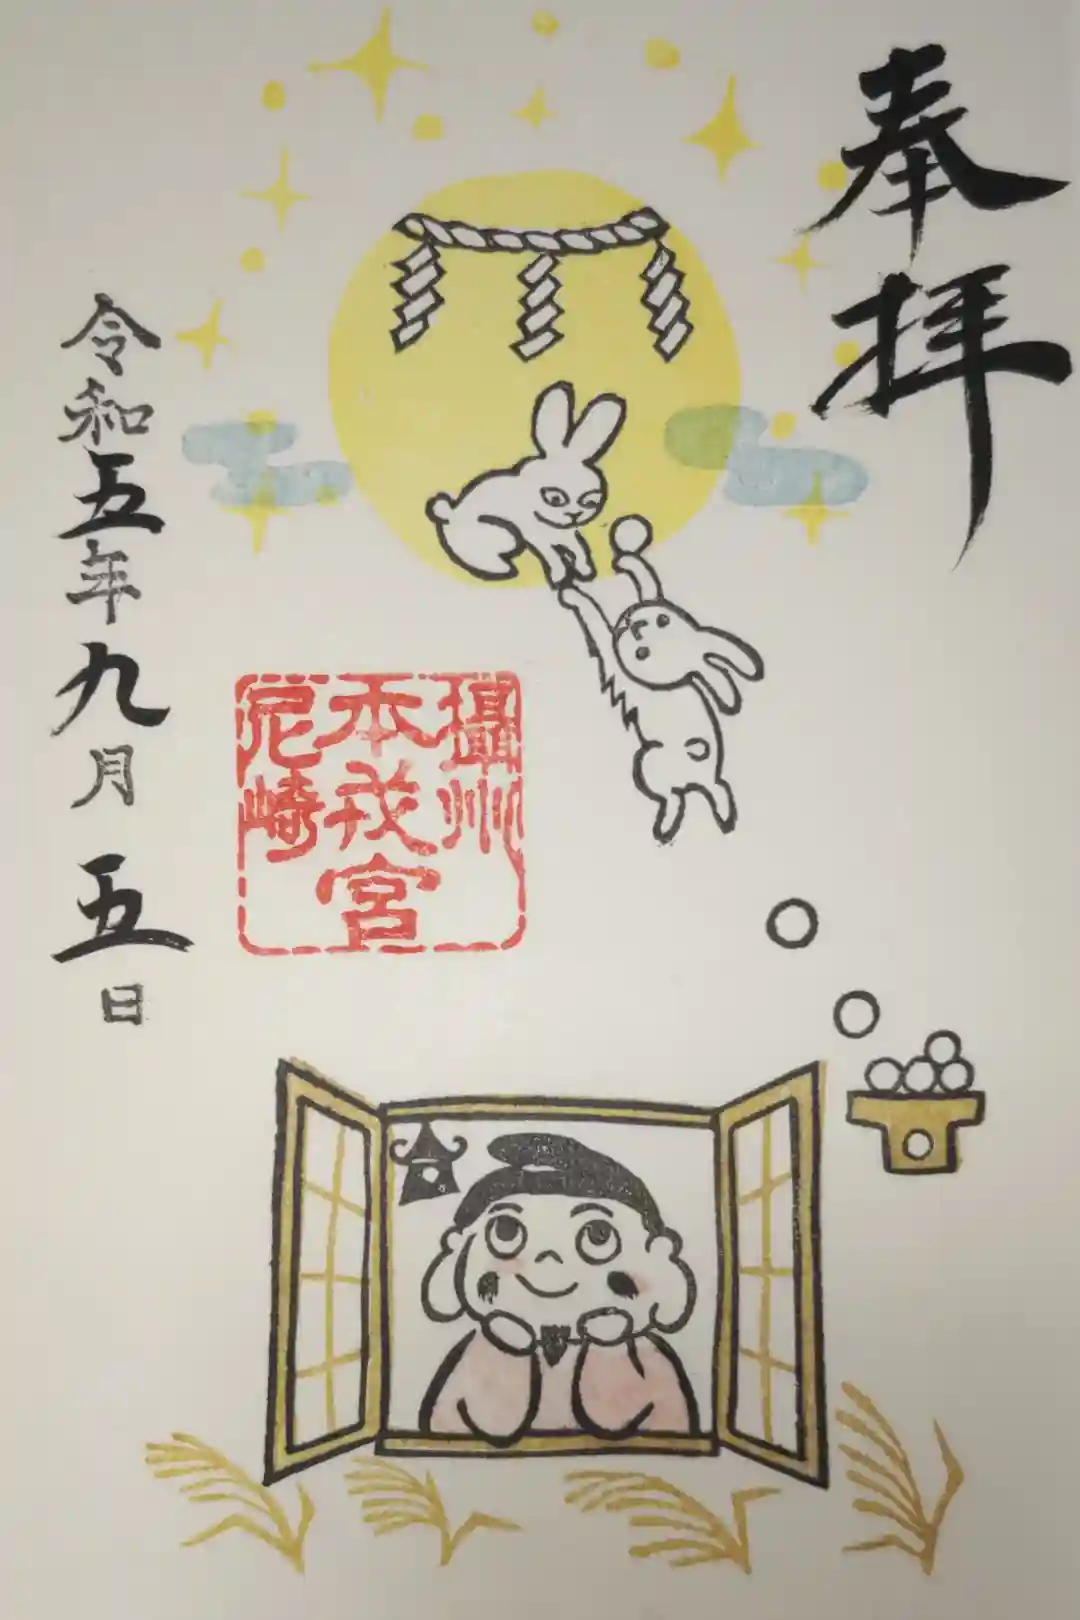 奉拝
攝州
本戎宮
尼崎
令和五年九月五日